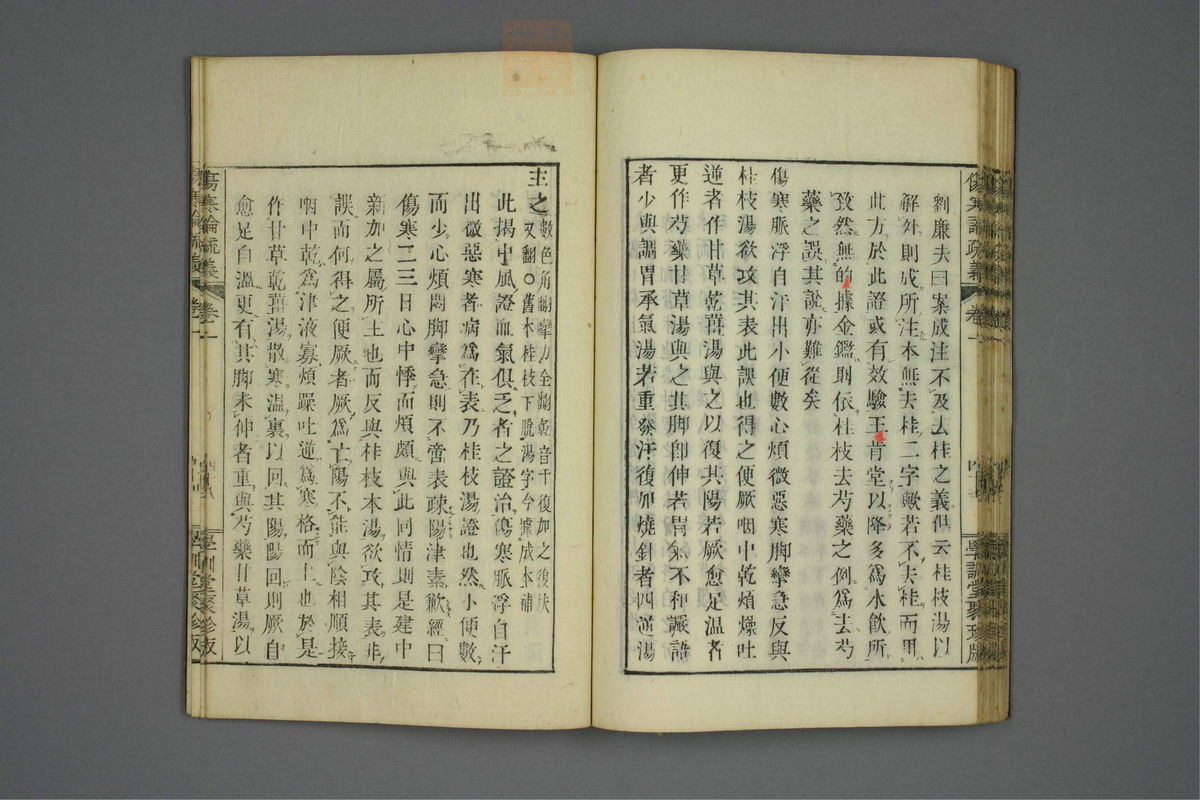 傷寒論疏義 卷一 學訓堂聚珍版
劉廉夫曰案成注不及去桂之義但云桂枝湯以
解外則成所注本無去桂二字歟若不去桂而用
此方於此證或有效驗王肯堂以降多爲水飲所
致然無的據金鑑則依桂枝去芍藥之例爲去芍
藥之誤其說亦難從矣
傷寒脈浮自汗出小便數心煩微惡寒脚攣急反與
桂枝湯欲攻其表此誤也得之便厥咽中乾煩燥吐
逆者作甘草乾薑湯與之以復其陽若厥愈足温者
更作芍藥甘草湯與之其脚卽伸若胃氣不和讝語
者少與調胃承氣湯若重發汗復加燒針者四逆湯
主之數色角翻攣力全翻乾音干復加之復扶
又翻○舊本桂枝下脫湯字今據成本補
此揭中風證血氣俱乏者之證治傷寒脈浮自汗
出微惡寒者病爲在表乃桂枝湯證也然小便數
而少心煩悶脚攣急則不啻表疎陽津素歉經曰
傷寒二三日心中悸而煩頗與此同情則是建中
新加之屬所主也而反與桂枝本湯欲攻其表非
誤而何得之便厥者厥爲亡陽不能與陰相順接
咽中乾爲津液寡煩躁吐逆爲寒格而上也於是
作甘草乾薑湯散寒温裏以回其陽陽回則厥自
愈足自溫更有其脚未伸者重與芍藥甘草湯以
傷寒論疏義 卷一 學訓堂聚珍版